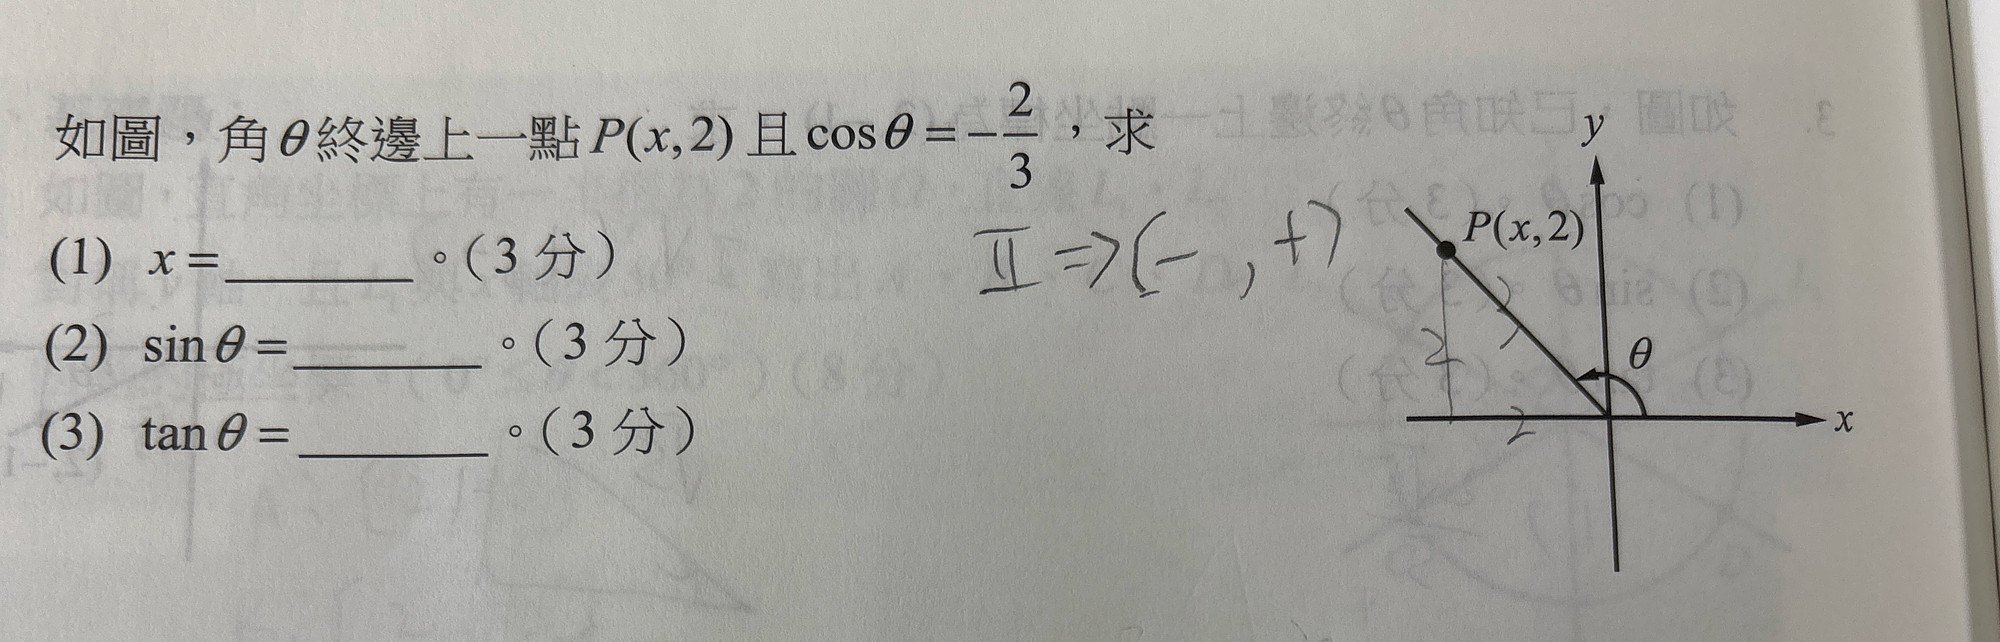 如圖，角θ終邊上一點P(x,2)且cosθ=-2/3，求
(1) x=______。(3分)
(2) sinθ=______。(3分)
(3) tanθ=______。(3分)
II⇒(-,+)
y
P(x,2)
θ
x
2
3
2